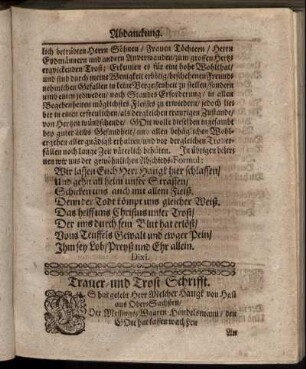 Abdanckung.
lich betrübten Herrn Söhnen / Frauen Töchtern / Herrn
Eydmännern und andern Anverwandten / zum großen Hertz
erquickenden Trost; Erkennen es für eine hohe Wohlthat /
und sind durch meine Wenigkeit erbötig / bescheiner Freund-
nehmlicher Gefallen in keine Vergessenheit zu stellen / sondern
umb einen jedweden / nach Standes Erforderung / zu allen
Begebenheiten möglichstes Fleisses zu erwiedern / jedoch lie-
ber in einer erfreulichen / als dergleichen traurigen Zustands /
von Hertzen wünschende / GOtt wolle dieselben ingesambt
bey guter Gesundheit / und allen behäglichen Wohl-
ergehen aber gnädigst erhalten / und vor dergleichen Trauer-
fällen noch lange Zeit väterlich behüten.
wir uns der gewöhnlichen Abschieds-Formul:
Wir lassen Euch Herr Haugt hier schlaffen /
Und gehn all heim unser Strassen /
Schicken uns auch mit allem Fleiß,
Denn der Todt kömpt uns gleicher Weiß.
Das helff uns Christus unser Trost /
Der uns durch sein Blut hat erlöst /
Vons Teuffels Gewalt und ewger Pein /
Ihm sey Lob / Preyß und Ehr allein.
Dixi.
Trauer- und Trost Schrifft.
ES hat gelebt Herr Melcher Haugt von Hall
aus Ober Sachsen /
Der Messings Waaren Handelsmann / den
GOtt hat lassen wachsen
An